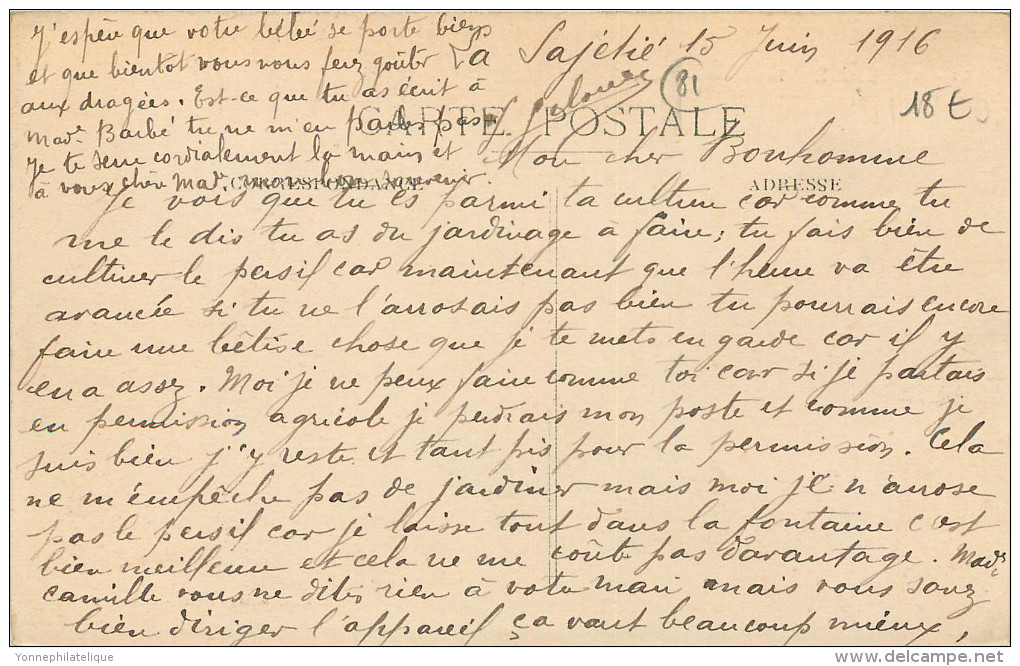 La Sajélié 15 Juin 1916
81
18 €
CARTE POSTALE
CORRESPONDANCE
ADRESSE
Mon cher Bonhomme
Je vois que tu es parmi ta culture car comme tu
me le dis tu as du jardinage à faire; tu fais bien de
cultiver le persil car maintenant que l'heure va être
avancée si tu ne l'arrosais pas bien tu pourrais encore
faire une bêtise chose que je te mets en garde car il y
en a assez. Moi je ne peux faire comme toi car si je partais
en permission agricole je perdrais mon poste et comme je
suis bien j'y reste et tant pis pour la permission. Cela
ne m'empêche pas de jardiner mais moi je n'arrose
pas le persil car je laisse tout dans la fontaine c'est
bien meilleur et cela ne me coûte pas davantage. Made
Camille vous ne dites rien à votre mari mais vous savez
bien diriger l'appareil ça vaut beaucoup mieux,
J'espère que votre bébé se porte bien
et que bientot vous nous ferez goûter
aux dragées. Est-ce que tu as écrit à
Made Barbé tu ne m'en parles pas
Je te serre cordialement la main et
à vous chère Made mon bon souvenir
Yonnephilatelique
www.delcampe.net